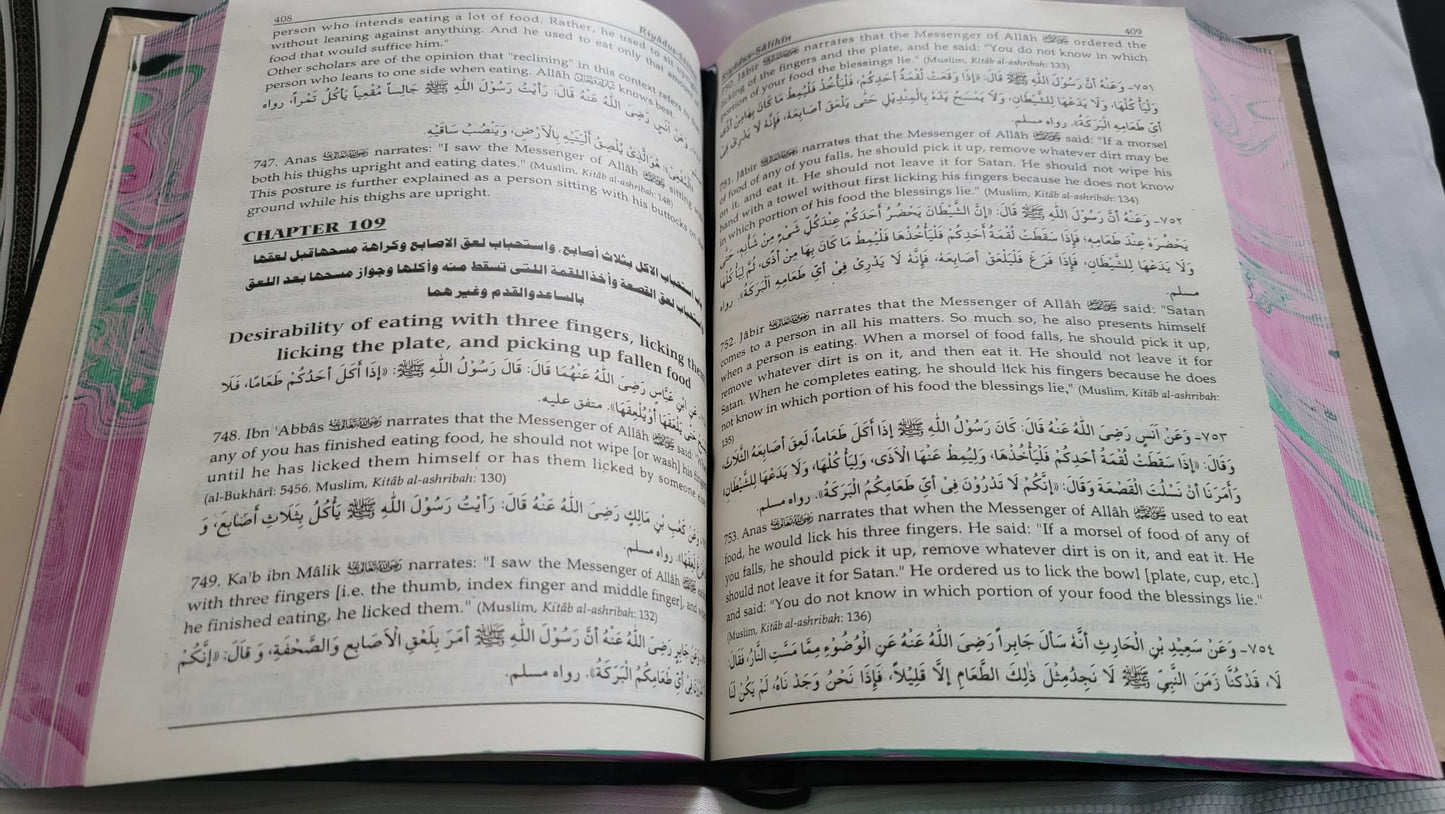 408
Riyâdus-Sâ
person who intends eating a lot of food. Rather, he used to sit upright
without leaning against anything. And he used to eat only that amount
food that would suffice him."
Other scholars are of the opinion that "reclining" in this context refers
person who leans to one side when eating. Allâh knows best.
وَعَنْ أَنَسٍ رَضِىَ اللّٰهُ عَنْهُ قَالَ: رَأَيْتُ رَسُوْلَ اللّٰهِ ﷺ جَالِساً مُقْعِياً يَأْكُلُ تَمْراً، رواه
هُوَالَّذِىْ يُلْصِقُ أَلْيَتَيْهِ بِالْاَرْضِ، وَيَنْصُبُ سَاقَيْهِ.
747. Anas narrates: "I saw the Messenger of Allâh sitting
both his thighs upright and eating dates." (Muslim, Kitâb al-ashribah: 148)
This posture is further explained as a person sitting with his buttocks on the
ground while his thighs are upright.
CHAPTER 109
استحباب الاكل بثلاث أصابع، واستحباب لعق الاصابع وكراهة مسحهاقبل لعقها
واستحباب لعق القصعة وأخذاللقمة اللتى تسقط منه وأكلها وجواز مسحها بعد اللعق
بالساعدوالقدم وغيرهما
Desirability of eating with three fingers, licking them
licking the plate, and picking up fallen food
عَنِ ابْنِ عَبَّاسٍ رَضِىَ اللّٰهُ عَنْهُمَا قَالَ: قَالَ رَسُوْلُ اللّٰهِ ﷺ: «إِذَا أَكَلَ أَحَدُكُمْ طَعَامًا، فَلَا
حَتّٰى يَلْعَقَهَا أَوْ يُلْعِقَهَا». متفق عليه.
748. Ibn 'Abbâs narrates that the Messenger of Allâh said:
any of you has finished eating food, he should not wipe [or wash] his fingers
until he has licked them himself or has them licked by someone else
(al-Bukhârî: 5456. Muslim, Kitâb al-ashribah: 130)
وَعَنْ كَعْبِ بْنِ مَالِكٍ رَضِىَ اللّٰهُ عَنْهُ قَالَ: رَأَيْتُ رَسُوْلَ اللّٰهِ ﷺ يَأْكُلُ بِثَلَاثِ أَصَابِعَ، وَ
لَعِقَهَا». رواه مسلم.
749. Ka'b ibn Mâlik narrates: "I saw the Messenger of Allâh
with three fingers [i.e. the thumb, index finger and middle finger], and
he finished eating, he licked them." (Muslim, Kitâb al-ashribah: 132)
وَعَنْ جَابِرٍ رَضِىَ اللّٰهُ عَنْهُ أَنَّ رَسُوْلَ اللّٰهِ ﷺ أَمَرَ بِلَعْقِ الْاَصَابِعِ وَالصَّحْفَةِ، وَ قَالَ: «إِنَّكُمْ
فِىْ أَىِّ طَعَامِكُمُ الْبَرَكَةُ». رواه مسلم.
Riyâdus-Sâlihîn
409
750. Jâbir narrates that the Messenger of Allâh ordered the
licking of the fingers and the plate, and he said: "You do not know in which
portion of your food the blessings lie." (Muslim, Kitâb al-ashribah: 133)
٧٥١- وَعَنْهُ أَنَّ رَسُوْلَ اللّٰهِ ﷺ قَالَ: «إِذَا وَقَعَتْ لُقْمَةُ أَحَدِكُمْ، فَلْيَأْخُذْ فَلْيُمِطْ مَا كَانَ بِهَامِنْ أَذًى
وَلْيَأْ كُلْهَا، وَلَا يَدَعْهَا لِلشَّيْطَانِ، وَلَا يَمْسَحْ يَدَهُ بِالْمِنْدِيْلِ حَتّٰى يَلْعَقَ أَصَابِعَهُ، فَإِنَّهُ لَا يَدْرِىْ فِىْ
أَىِّ طَعَامِهِ الْبَرَكَةُ». رواه مسلم.
751. Jâbir narrates that the Messenger of Allâh said: "If a morsel
of food of any of you falls, he should pick it up, remove whatever dirt may be
on it, and eat it. He should not leave it for Satan. He should not wipe his
hand with a towel without first licking his fingers because he does not know
in which portion of his food the blessings lie." (Muslim, Kitâb al-ashribah: 134)
٧٥٢- وَعَنْهُ أَنَّ رَسُوْلَ اللّٰهِ ﷺ قَالَ: «إِنَّ الشَّيْطَانَ يَحْضُرُ أَحَدَكُمْ عِنْدَكُلِّ شَىْءٍ مِنْ شَأْنِهِ، حَتّٰى
يَحْضُرَهُ عِنْدَ طَعَامِهِ؛ فَإِذَا سَقَطَتْ لُقْمَةُ أَحَدِكُمْ فَلْيَأْخُذْهَا فَلْيُمِطْ مَا كَانَ بِهَا مِنْ أَذًى، ثُمَّ لِيَأْ كُلْهَا
وَلَا يَدَعْهَا لِلشَّيْطَانِ، فَإِذَا فَرَغَ فَلْيَلْعَقْ أَصَابِعَهُ، فَإِنَّهُ لَا يَدْرِىْ فِىْ أَىِّ طَعَامِهِ الْبَرَكَةُ». رواه
مسلم.
752. Jâbir narrates that the Messenger of Allâh said: "Satan
comes to a person in all his matters. So much so, he also presents himself
when a person is eating. When a morsel of food falls, he should pick it up,
remove whatever dirt is on it, and then eat it. He should not leave it for
Satan. When he completes eating, he should lick his fingers because he does
not know in which portion of his food the blessings lie." (Muslim, Kitâb al-ashribah:
135)
٧٥٣- وَعَنْ أَنَسٍ رَضِىَ اللّٰهُ عَنْهُ قَالَ: كَانَ رَسُوْلُ اللّٰهِ ﷺ إِذَا أَكَلَ طَعَاماً، لَعِقَ أَصَابِعَهُ الثَّلَاثَ،
وَقَالَ: «إِذَا سَقَطَتْ لُقْمَةُ أَحَدِكُمْ فَلْيَأْخُذْهَا، وَلْيُمِطْ عَنْهَا الْاَذَى، وَلْيَأْ كُلْهَا، وَلَا يَدَعْهَا لِلشَّيْطَانِ»
وَأَمَرَنَا أَنْ نَسْلُتَ الْقَصْعَةَ وَقَالَ: «إِنَّكُمْ لَا تَدْرُوْنَ فِىْ أَىِّ طَعَامِكُمُ الْبَرَكَةُ». رواه مسلم.
753. Anas narrates that when the Messenger of Allâh used to eat
food, he would lick his three fingers. He said: "If a morsel of food of any of
you falls, he should pick it up, remove whatever dirt is on it, and eat it. He
should not leave it for Satan." He ordered us to lick the bowl [plate, cup, etc.]
and said: "You do not know in which portion of your food the blessings lie."
(Muslim, Kitâb al-ashribah: 136)
٧٥٤- وَعَنْ سَعِيْدِ بْنِ الْحَارِثِ أَنَّهُ سَأَلَ جَابِراً رَضِىَ اللّٰهُ عَنْهُ عَنِ الْوُضُوْءِ مِمَّا مَسَّتِ النَّارُ، فَقَالَ:
لَا، قَدْكُنَّا زَمَنَ النَّبِىِّ ﷺ لَا نَجِدُمِثْلَ ذٰلِكَ الطَّعَامِ إِلَّا قَلِيْلاً، فَإِذَا نَحْنُ وَجَدْ نَاهُ، لَمْ يَكُنْ لَنَا